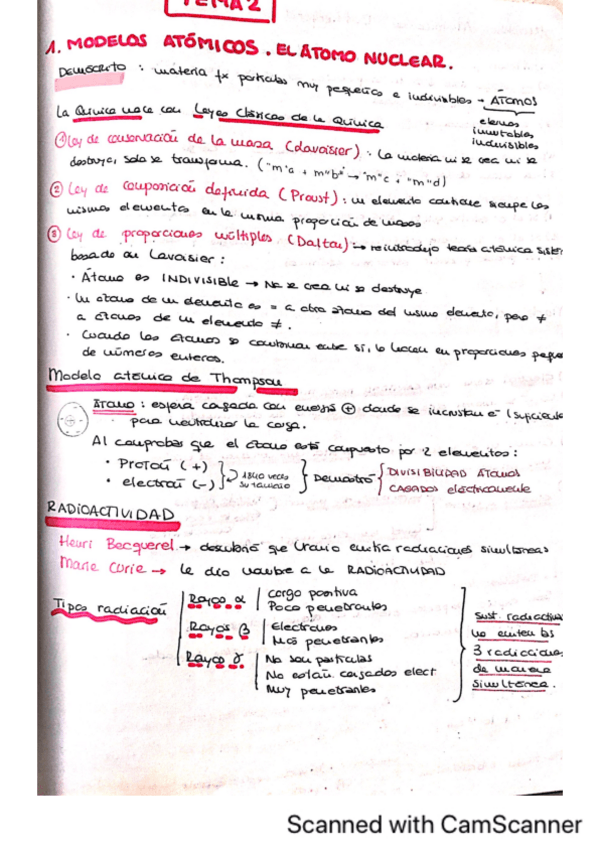 TEMA 2
1. MODELOS ATÓMICOS. EL ÁTOMO NUCLEAR.
DEMÓCRITO : materia fx partículas muy pequeñas e indivisibles → ÁTOMOS
eternos
inmutables
indivisibles
La Química nace con Leyes Clásicas de la Química
① Ley de conservación de la masa (Lavoisier) : La materia ni se crea ni se
destruye, solo se transforma. ("m"a + m"b" → "m"c + "m"d)
② Ley de composición definida (Proust) : un elemento contiene siempre los
mismos elementos en la misma proporción de masas
③ Ley de proporciones múltiples (Dalton) → reintrodujo teoría atómica
basado en Lavoisier :
· Átomo es INDIVISIBLE → No se crea ni se destruye
· Un átomo de un elemento es = a otro átomo del mismo elemento, pero ≠
a átomos de un elemento ≠.
· Cuando los átomos se combinan entre sí, lo hacen en proporciones
de números enteros.
Modelo atómico de Thompson
ÁTOMO : esfera cargada con energía ⊕ donde se incrustan e⁻ (suficiente
para neutralizar la carga.
Al comprobar que el átomo está compuesto por 2 elementos :
· PROTÓN (+)
· electrón (-)
1840 veces
su tamaño
Demostró
DIVISIBILIDAD ÁTOMOS
CARGADOS eléctricamente
RADIOACTIVIDAD
Henri Becquerel → descubrió que Uranio emitía radiaciones simultáneas
Marie Curie → le dio nombre a la RADIOACTIVIDAD
Tipos radiación
Rayos α
Carga positiva
Poco penetrantes
Rayos β
Electrones
Más penetrantes
Rayos γ
No son partículas
No están cargados elect
Muy penetrantes
Sust radiactivas
no emiten las
3 radiaciones
de manera
simultánea.
Scanned with CamScanner